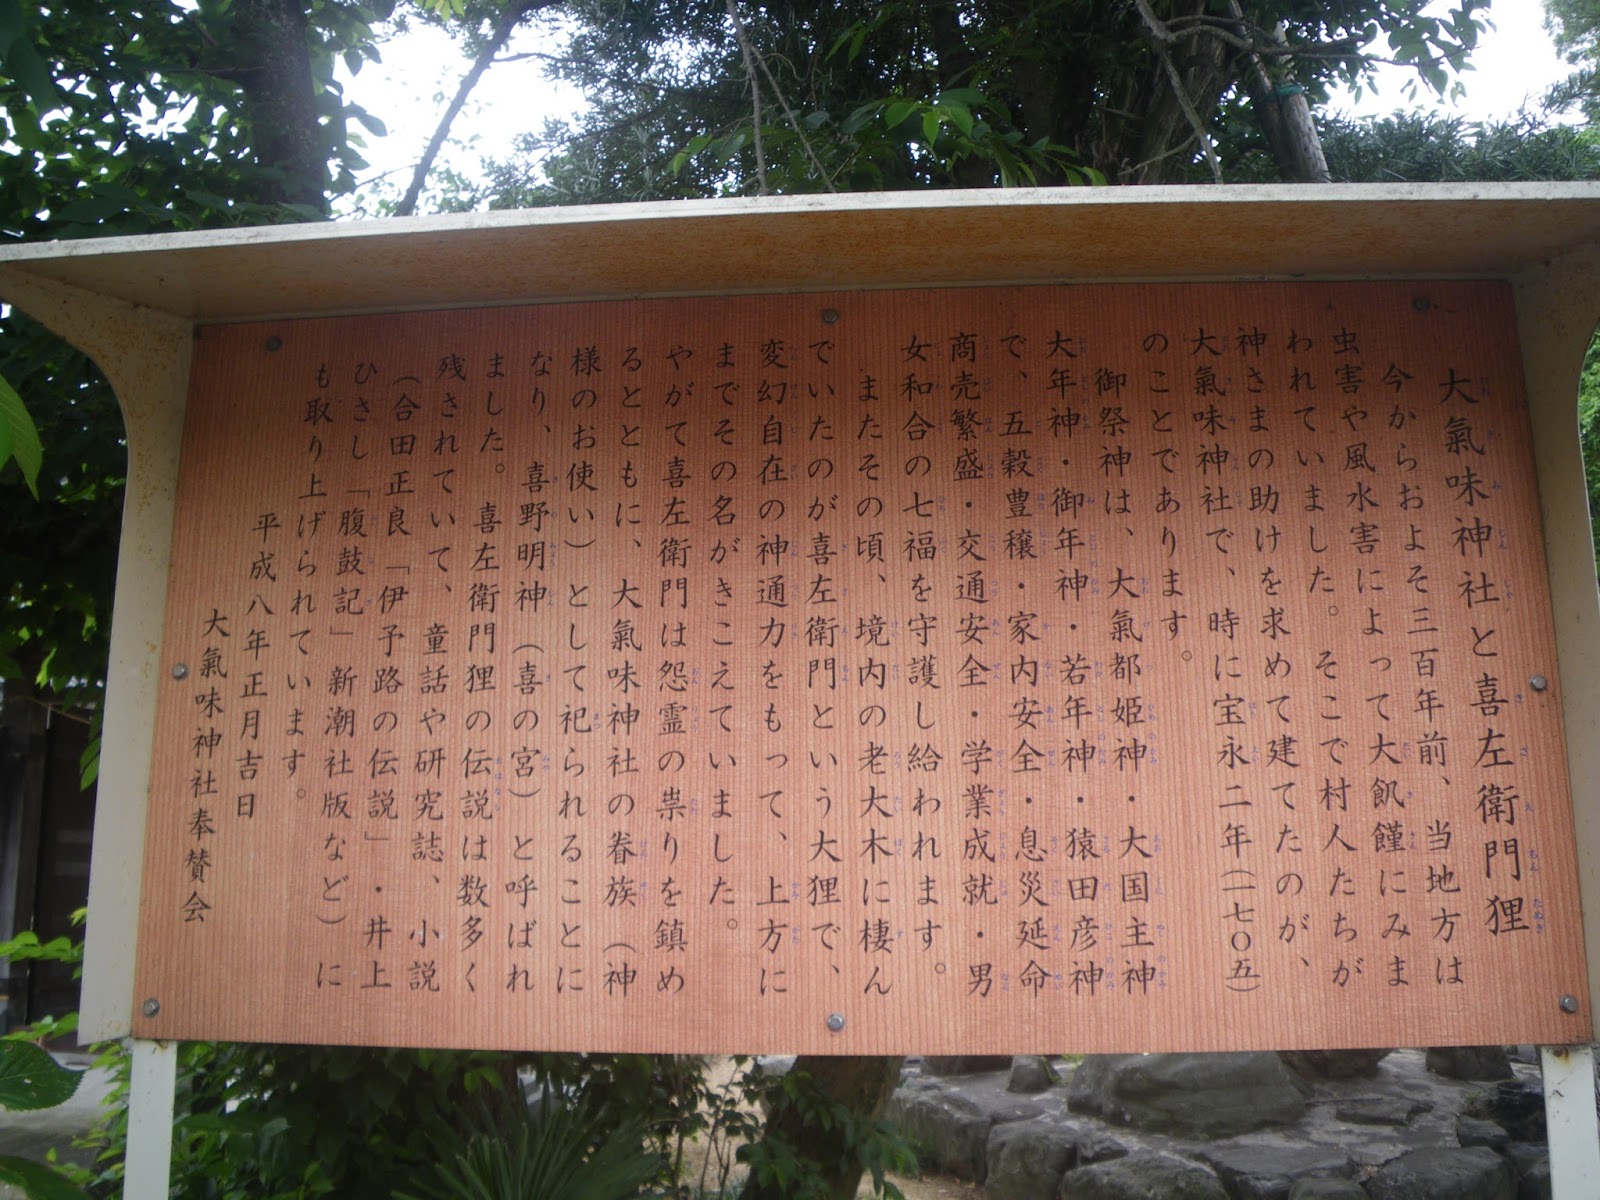 大氣味神社と喜左衛門狸
今からおよそ三百年前、当地方は
虫害や風水害によって大飢饉にみま
われていました。そこで村人たちが
神さまの助けを求めて建てたのが、
大氣味神社で、時に宝永二年(一七〇五)
のことであります。
御祭神は、大氣都姫神・大国主神
大年神・御年神・若年神・猿田彦神
で、五穀豊穣・家内安全・息災延命
商売繁盛・交通安全・学業成就・男
女和合の七福を守護し給われます。
またその頃、境内の老大木に棲ん
でいたのが喜左衛門という大狸で、
変幻自在の神通力をもって、上方に
までその名がきこえていました。
やがて喜左衛門は怨霊の祟りを鎮め
るとともに、大氣味神社の眷族(神
様のお使い)として祀られることに
なり、喜野明神(喜の宮)と呼ばれ
ました。喜左衛門狸の伝説は数多く
残されていて、童話や研究誌、小説
(合田正良「伊予路の伝説」・井上
ひさし「腹鼓記」新潮社版など)に
も取り上げられています。
平成八年正月吉日
大氣味神社奉賛会